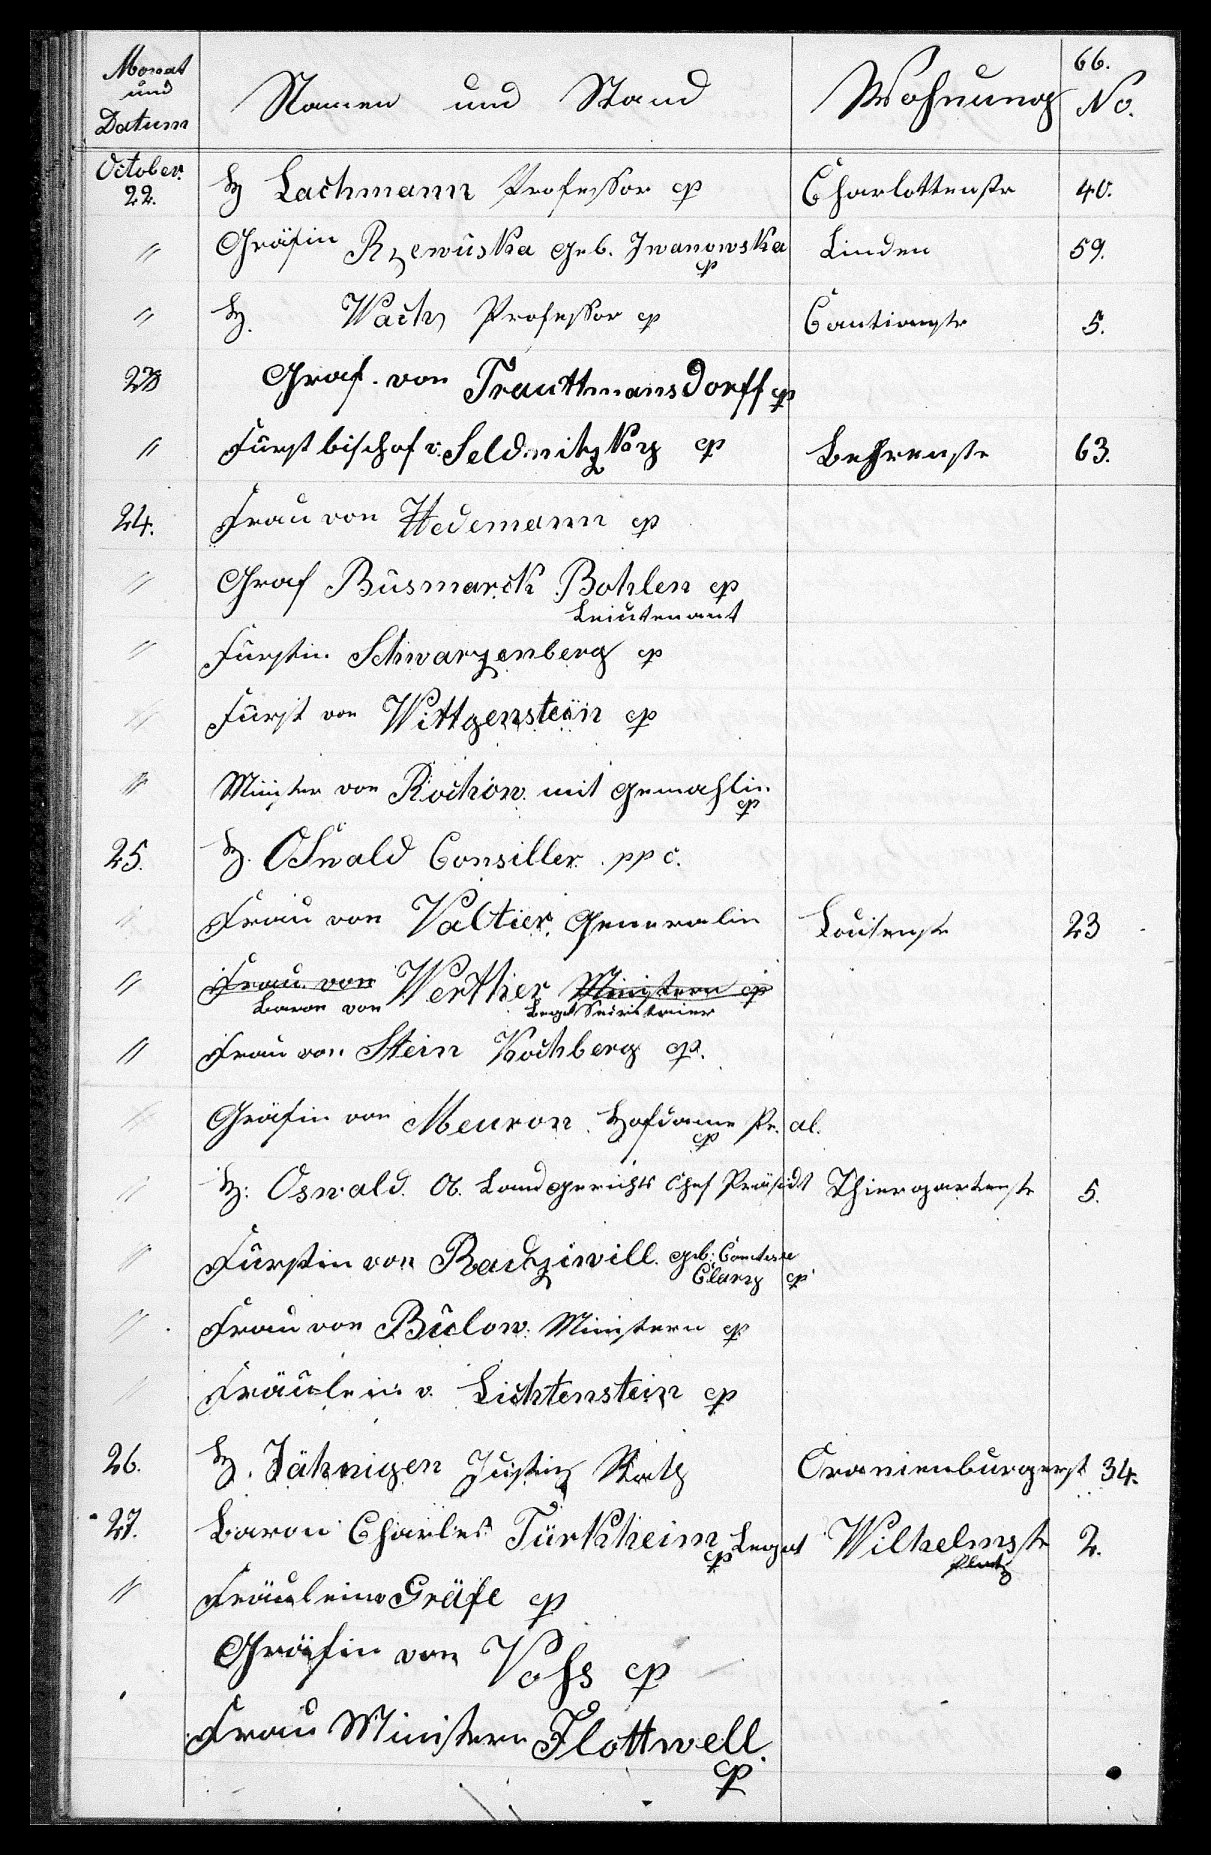 66.
Monat und Datum Namen und Stand Wohnung No.
October. 22. H Lachmann Professor cp Charlottenstr 40.
" Gräfin Rzewuska geb. Iwanowska cp Linden 59.
" H. Wach Professor cp Cantianstr 5.
23 Graf von Trauttmansdorff cp
" Fürstbischof v. Seldnitzky cp Behrenstr 63.
24. Frau von Hedemann cp
" Graf Büsmarck Bohlen cp
Leiutenant
" Fürstin Schwarzenberg cp
" Fürst von Wittgenstein cp
" Minister von Rochow mit Gemahlin cp
25. H. Oswald Consiller. ppc.
" Frau von Valtier. Generalin Louisenstr 23
" Frau von Werther Ministern cp
Baron von Legat Secritairer
" Frau von Stein Kochberg cp.
" Gräfin von Meuron. Hofdame Pr. al. cp
" H: Oswald. Ob. Landgerichts Chef Präsidt Thiergartenstr 5.
" Fürstin von Radziwill. geb: Comtesse Clary cp
" Frau von Bülow. Ministern cp
" Fräulein v. Lichtenstein cp
26. H. Jähnigen Justiz Rath Oranienburgerst 34.
27. Baron Charles Türkheim cp Legat Wilhelmstr 2.
Platz
" Fräulein Gräfe cp
Gräfin von Vohs cp
Frau Ministern Flottwell. cp